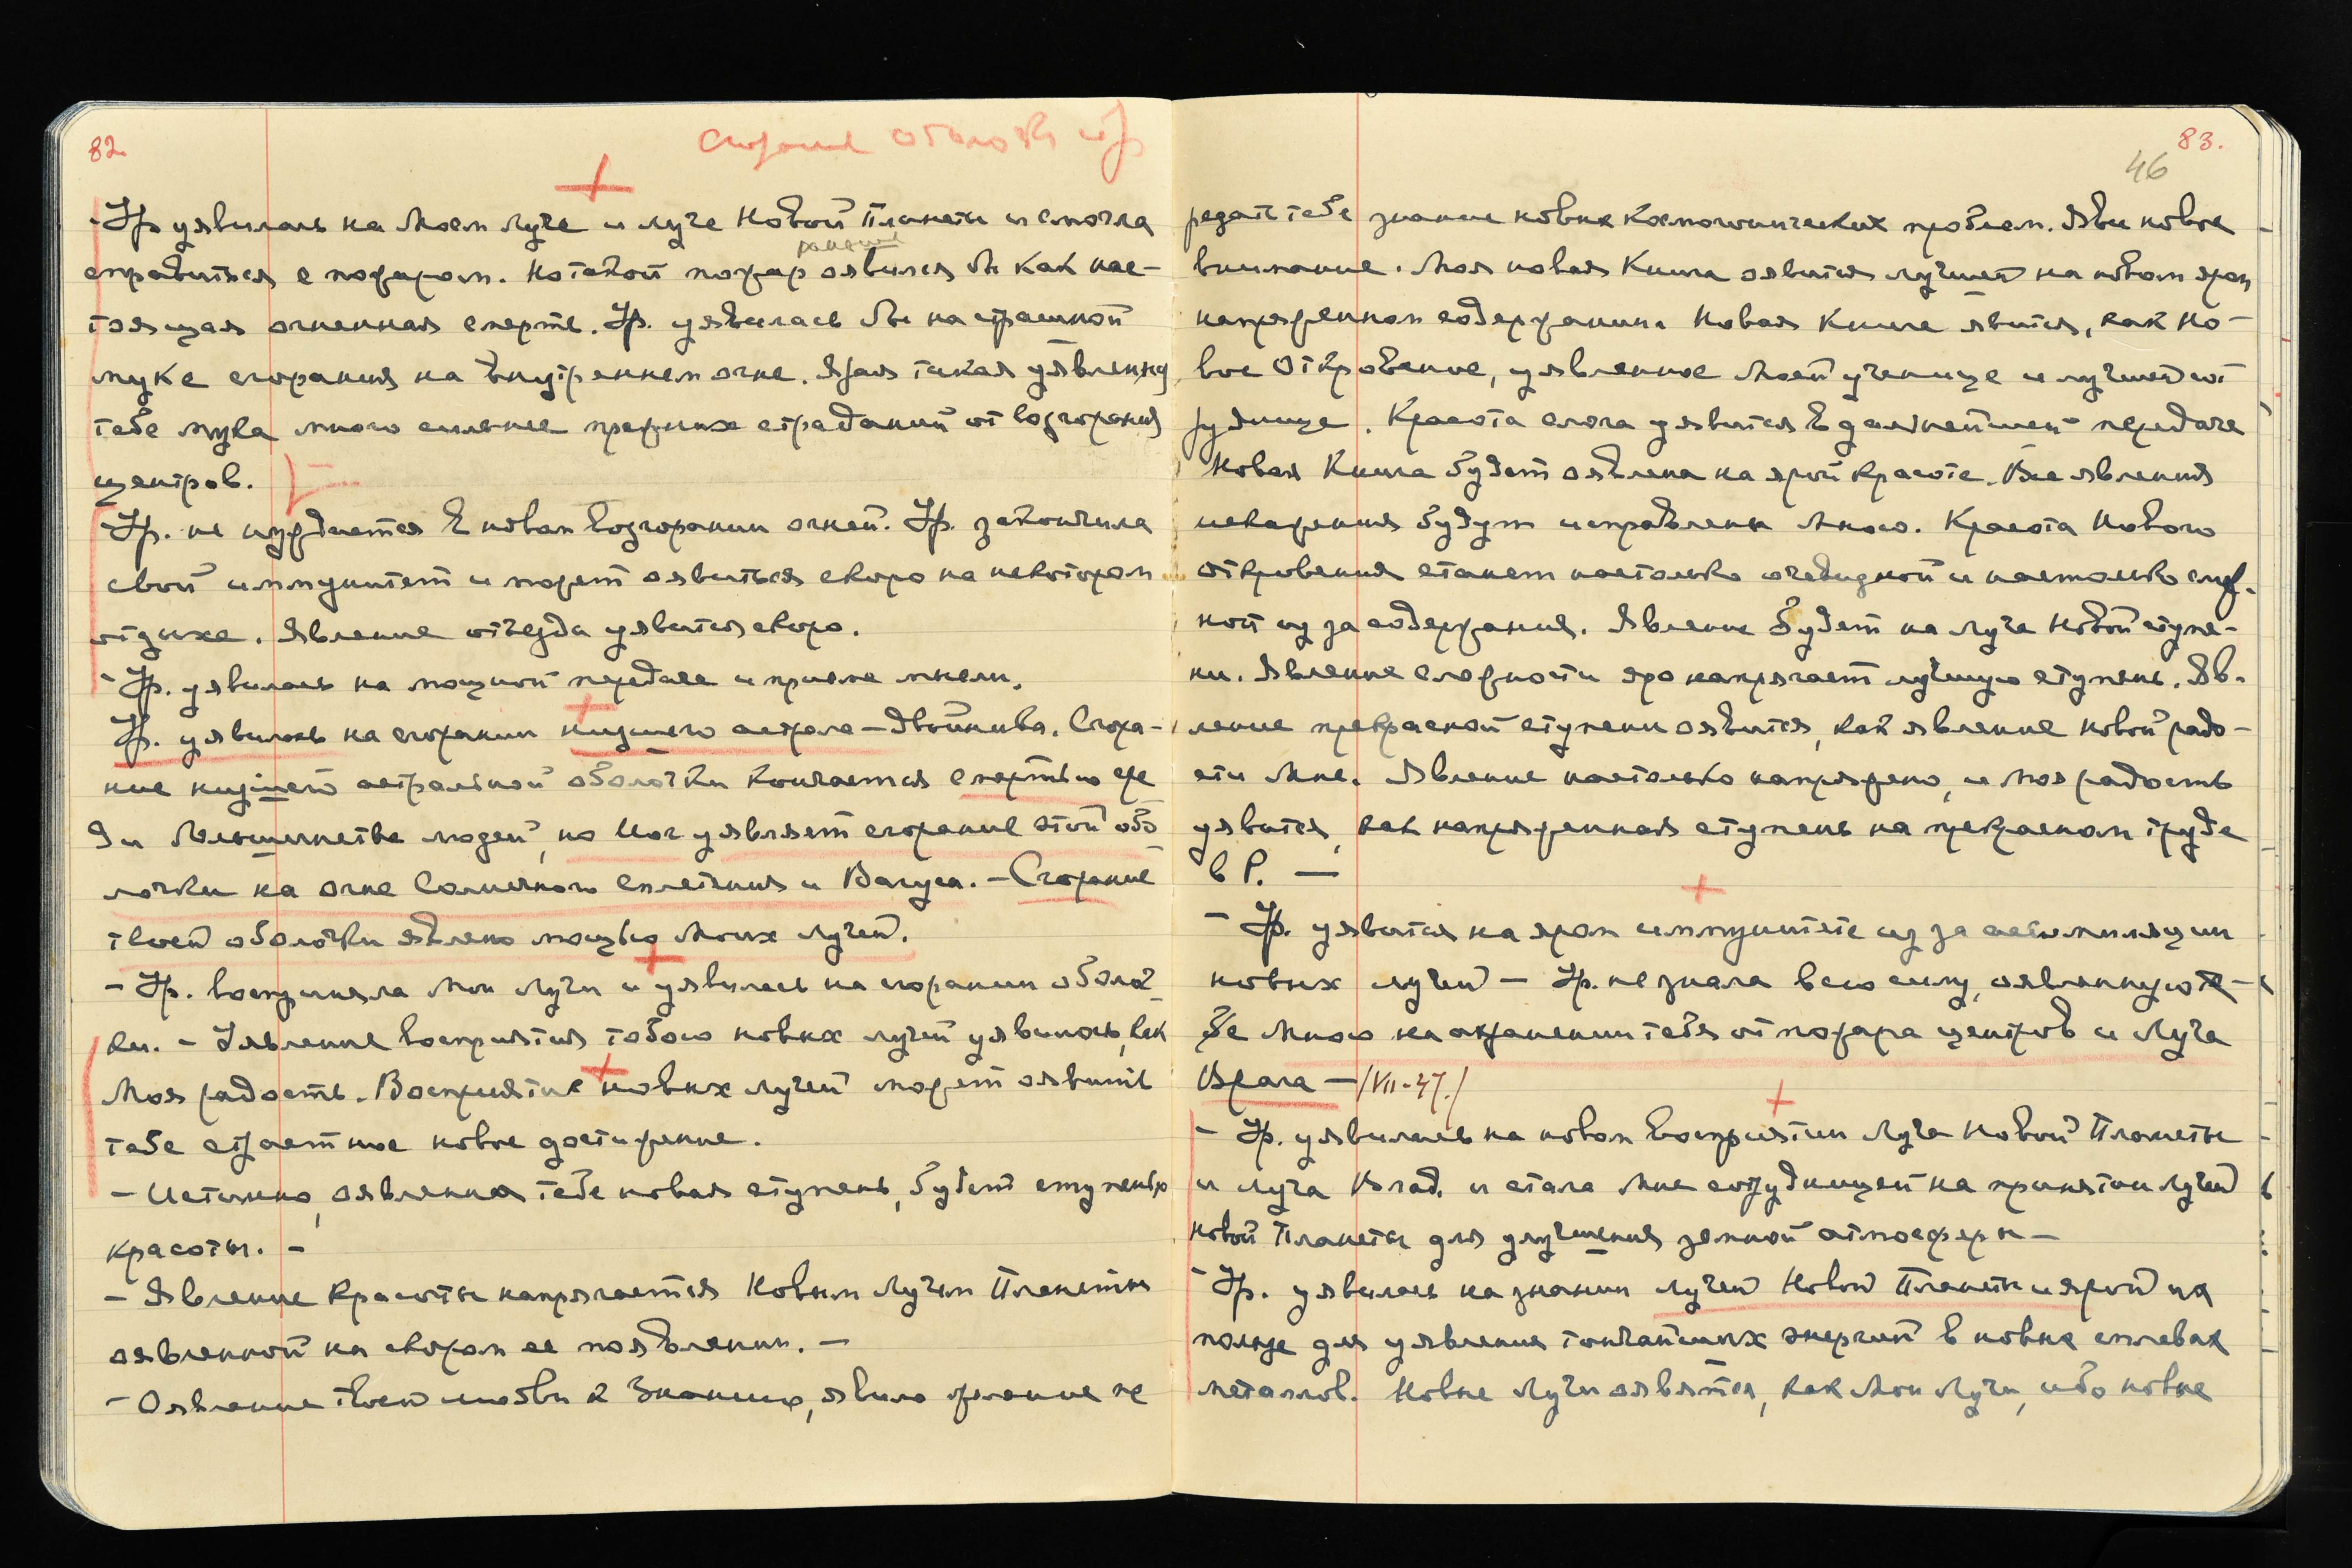 82.
сгорание оболочки
- Ур. уявилась на Моем Луче и луче Новой Планеты и смогла
раньше
справиться с пожаром. Но такой пожар оявился бы как нас-
тоящая огненная смерть. Ур. уявилась бы на страшной
муке сгорания на внутреннем огне. Ярая такая уявленная
тебе мука много сильнее прежних страданий от возгорания
центров.
Ур. не нуждается в новом возгорании огней. Ур. закончила
свой иммунитет и может оявиться скоро на некотором
отдыхе. Явление отъезда уявится скоро.
- Ур. уявилась на мощной передаче и приеме мысли.
Ур. уявилась на сгорании низшего астрала – двойника. Сгора-
ние низшего астральной оболочки кончается смертью сре
ди большинства людей, но Йог уявляет сгорание этой обо
лочки на огне Солнечного Сплетения и Вагуса. – Сгорание
твоей оболочки явлено мощью Моих Лучей.
- Ур. восприняла Мои Лучи и уявилась на сгорании оболоч-
ки. – Уявление восприятия тобою новых лучей уявилось, как
Моя радость. Восприятие новых лучей может оявить
тебе страстное новое достижение.
- Истинно, оявленная тебе новая ступень, будет ступенью
красоты. -
- Явление Красоты напрягается Новым Лучем Планеты
оявленной на скором ее появлении. -
- Оявление твоей любви к Знанию, явило желание пе
83.
46
редать тебе знание новых космогонических проблем. Яви новое
внимание. Моя новая Книга оявится лучшей на новом яром
напряженном содержании. Новая Книга явится, как Но-
вое Откровение, уявленное Моей ученице и лучшей сот
руднице. Красота слога уявится в дальнейшей передаче
Новая Книга будет оявлена на ярой красоте. Все явления
искажения будут исправлены Мною. Красота Нового
откровения станет настолько очевидной и настолько слож.
ной из за содержания. Явление будет на Луче Новой ступе-
ни. Явление сложности яро напрягает лучшую ступень. Яв-
ление прекрасной ступени оявится, как явление новой радо-
сти Мне. Явление настолько напряжено, и Моя радость
уявится, как напряженная ступень на прекрасном труде
в Р. —
- Ур. уявится на яром иммунитете из за ассимиляции
новых лучей – Ур. не знала всю силу, оявленную те-
бе Мною на охранении тебя от пожара центров и Луча
Врага – /VII-47./
- Ур. уявилась на новом восприятии Луча Новой Планеты
и луча Влад. и стала Мне сотрудницей на принятии Лучей
Новой Планеты для улучшения земной атмосферы –
- Ур. уявилась на знании лучей Новой Планеты и ярой их
пользе для уявления тончайших энергий в новых сплавах
металлов. Новые Лучи оявятся, как Мои Лучи, ибо новые